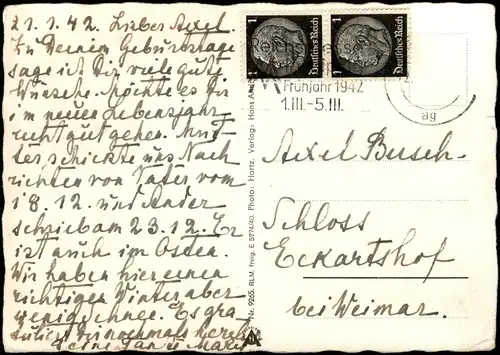 21.1.42. Lieber Axel.
Zu Deinem Geburtstage
sage ich Dir viele gute
Wünsche. Möchte es Dir
im neuen Lebensjahr
recht gut gehen. Mut-
ter schickte uns Nach
richten von Vater vom
18.12. und
schrieb am 23.12. Er
ist auch im Osten.
Wir haben hier einen
richtigen Winter aber
wenig Schnee. Es gra
tuliert Dir nochmals herzl.
Deine
1 Deutsches Reich
1 Deutsches Reich
Reichsmesse
Frühjahr 1942
1.III.-5.III.
ag
Nr. 9255. RLM. freig. Photo- Hartz. Verlag: Hans
Axel Busch
Schloss
Eckartshof
bei Weimar.